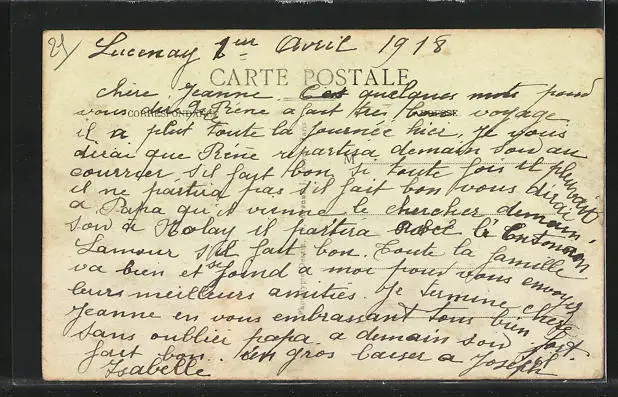 21) Lucenay 1er Avril 1918
CARTE POSTALE
chère Jeanne. Ces quelques mots pour
CORRESPONDANCE
vous dire q Rêne a fait très bon voyage
il a plut toute la journée hier. Je vous
dirai que Rêne repartira demain soir au
M
courrier s'il fait bon si toute fois il pleuvait
il ne partira pas s'il fait bon vous dirai
a Papa qu'il vienne le chercher demain
soir à Nolay il partira avec le
Lamour s'il fait bon. Toute la famille
va bien et se joind a moi pour vous envoyer
leurs meilleurs amitiés. Je termine chère
Jeanne en vous embrassant tous bien fort
sans oublier papa a demain soir s'il
fait bon. un gros baiser a Joseph
Isabelle